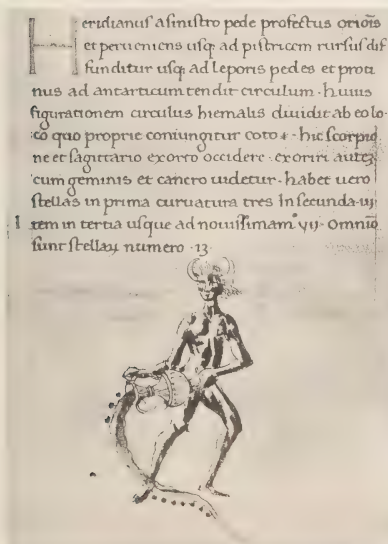 Heridianus a sinistro pede profectus orionis
et perueniens usq; ad pistricem rursus dif
funditur usq; ad leporis pedes et proti
nus ad antarticum tendit circulum · huius
figurationem circulus hiemalis diuidit ab eo lo-
co quo proprie coniungitur coto · hic scorpio
ne et sagittario exorto occidere · exoriri autez
cum geminis et cancro uidetur · habet uero
stellas in prima curuatura tres In secunda · iij
Item in tertia usque ad nouissimam vij · Omnio
sunt stellaȝ numero · 13 ·